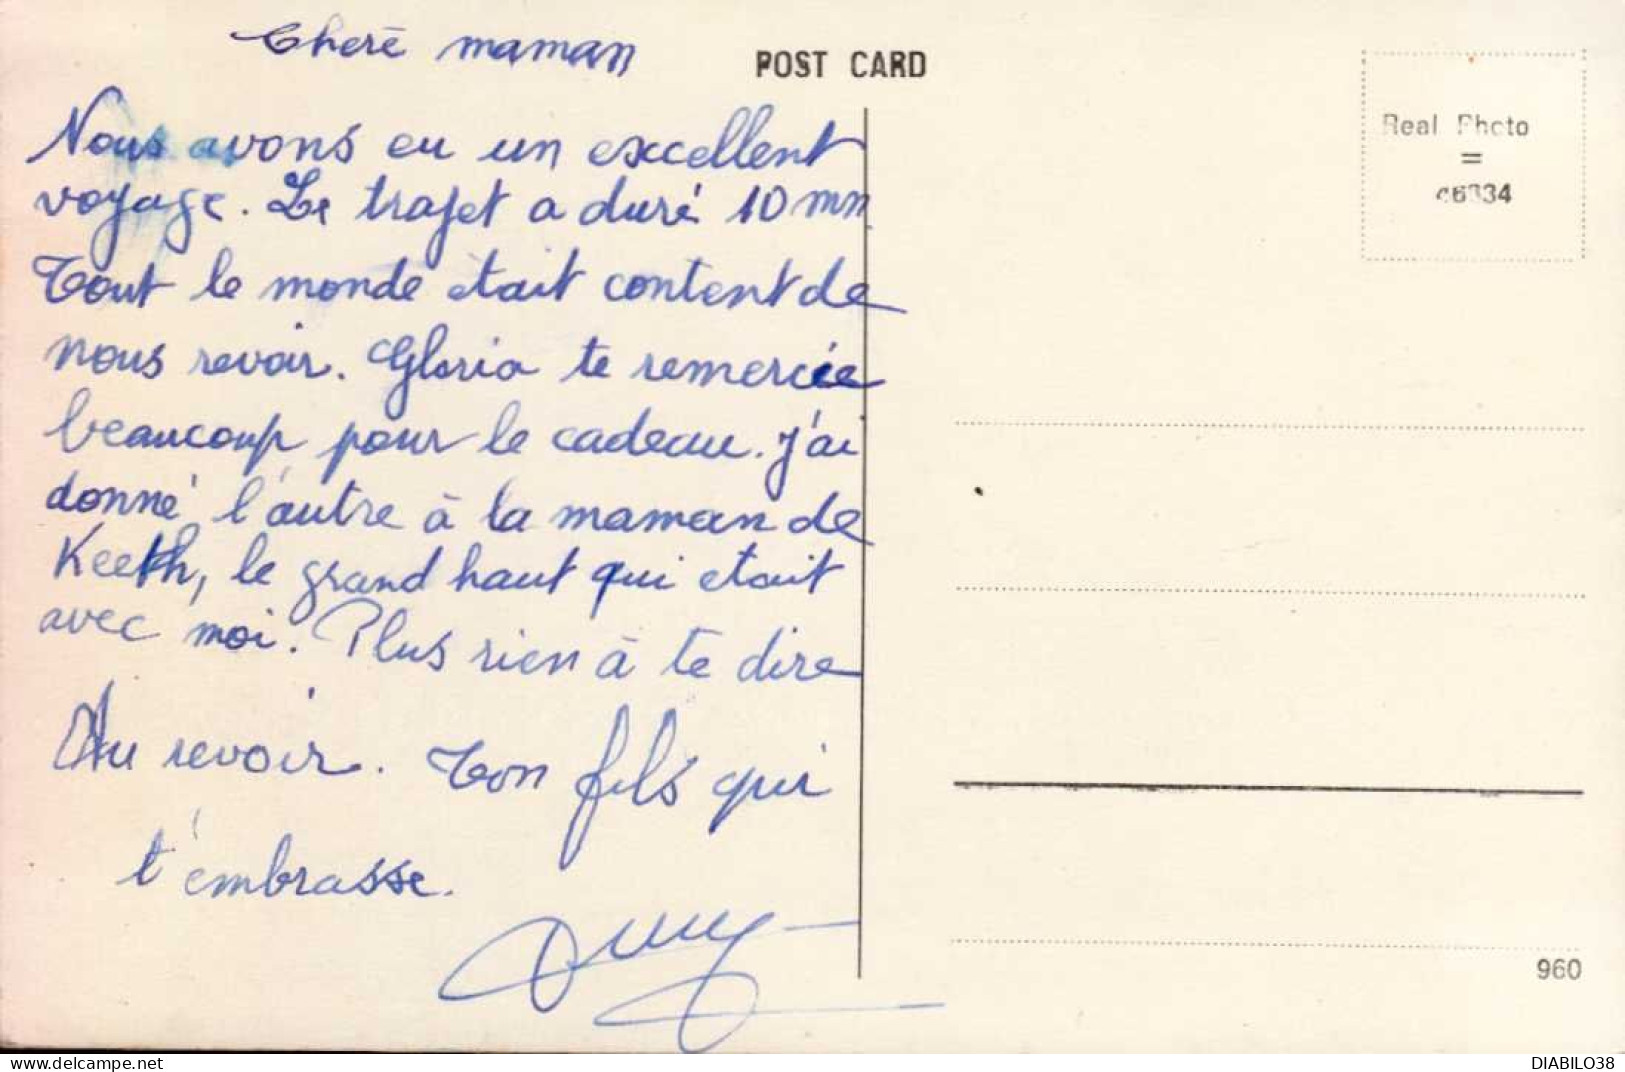 Cheré maman
POST CARD
Nous avons eu un excellent
voyage. Le trajet a duré 10 mn
Tout le monde était content de
nous revoir. Gloria te remerciée
beaucoup pour le cadeau. J'ai
donné l'autre à la maman de
Keeth, le grand haut qui etait
avec moi. Plus rien à te dire
Au revoir. Ton fils qui
t'embrasse.
Real Photo
=
960
DIABILO38